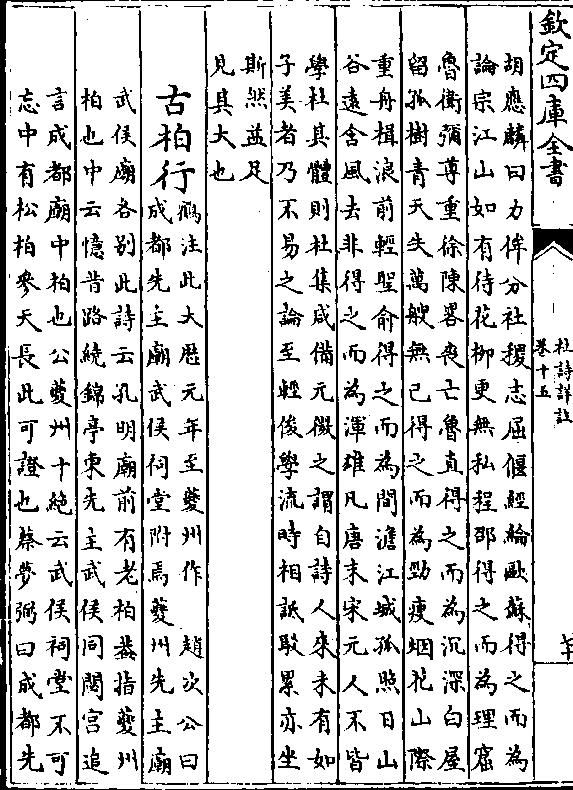 欽定四庫全書
杜詩詳註
卷十五
胡應麟曰力侔分社稷志屈偃經綸歐蘇得之而為
論宗江山如有待花柳更無私程邵得之而為理窟
魯衛彌尊重徐陳畧喪亡魯直得之而為沉深白屋
留孤樹青天失萬艘無已得之而為勁瘦烟花山際
重舟楫浪前輕聖俞得之而為閒澹江城孤照日山
谷遠含風去非得之而為渾雄凡唐末宋元人不皆
學杜其體則杜集咸備元微之謂自詩人來未有如
子美者乃不易之論至輕俊學流時相詆駁累亦坐
斯然益足
見其大也
古柏行
鶴注此大厯元年至夔州作　趙次公曰
成都先主廟武侯祠堂附焉夔州先主廟
武侯廟各别此詩云孔明廟前有老柏葢指夔州
柏也中云憶昔路繞錦亭東先主武侯同閟宫追
言成都廟中柏也公夔州十絶云武侯祠堂不可
忘中有松柏參天長此可證也蔡夢弼曰成都先